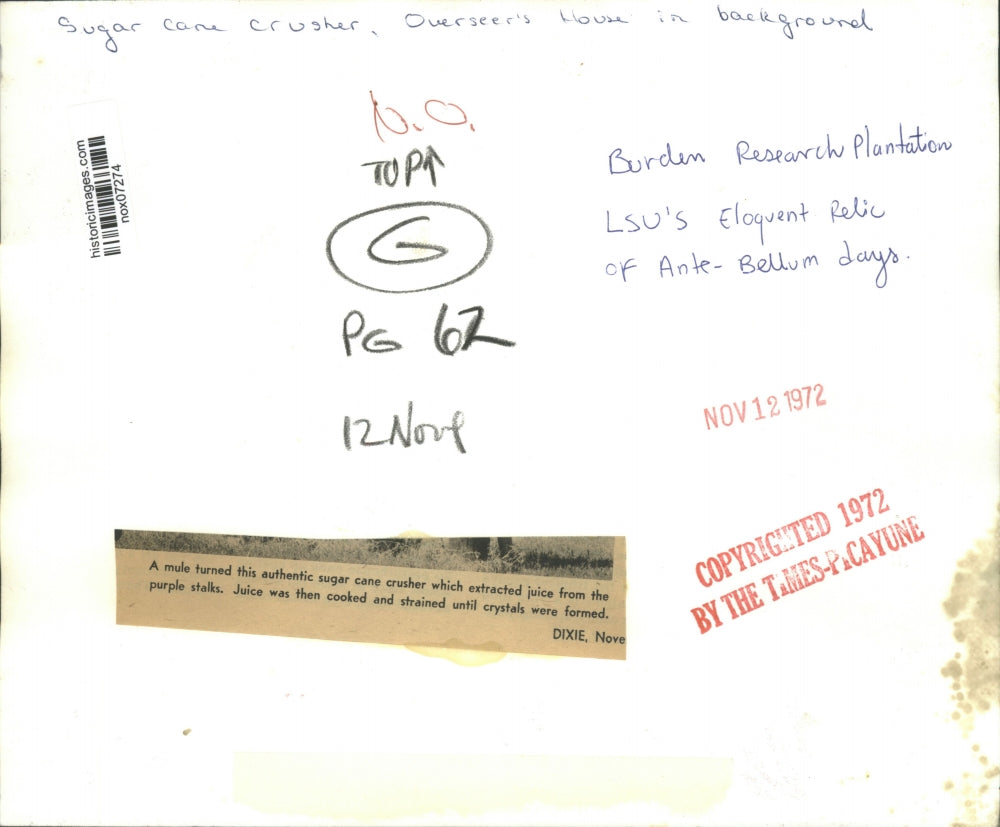 Sugar cane crusher, Overseer's House in background
N.O.
TOP↑
G
PG 62
12 Nove
historicimages.com
nox07274
Burden Research Plantation
LSU's Eloquent Relic
of Ante-Bellum days.
NOV 12 1972
COPYRIGHTED 1972
BY THE TIMES-PICAYUNE
A mule turned this authentic sugar cane crusher which extracted juice from the
purple stalks. Juice was then cooked and strained until crystals were formed.
DIXIE, Nove